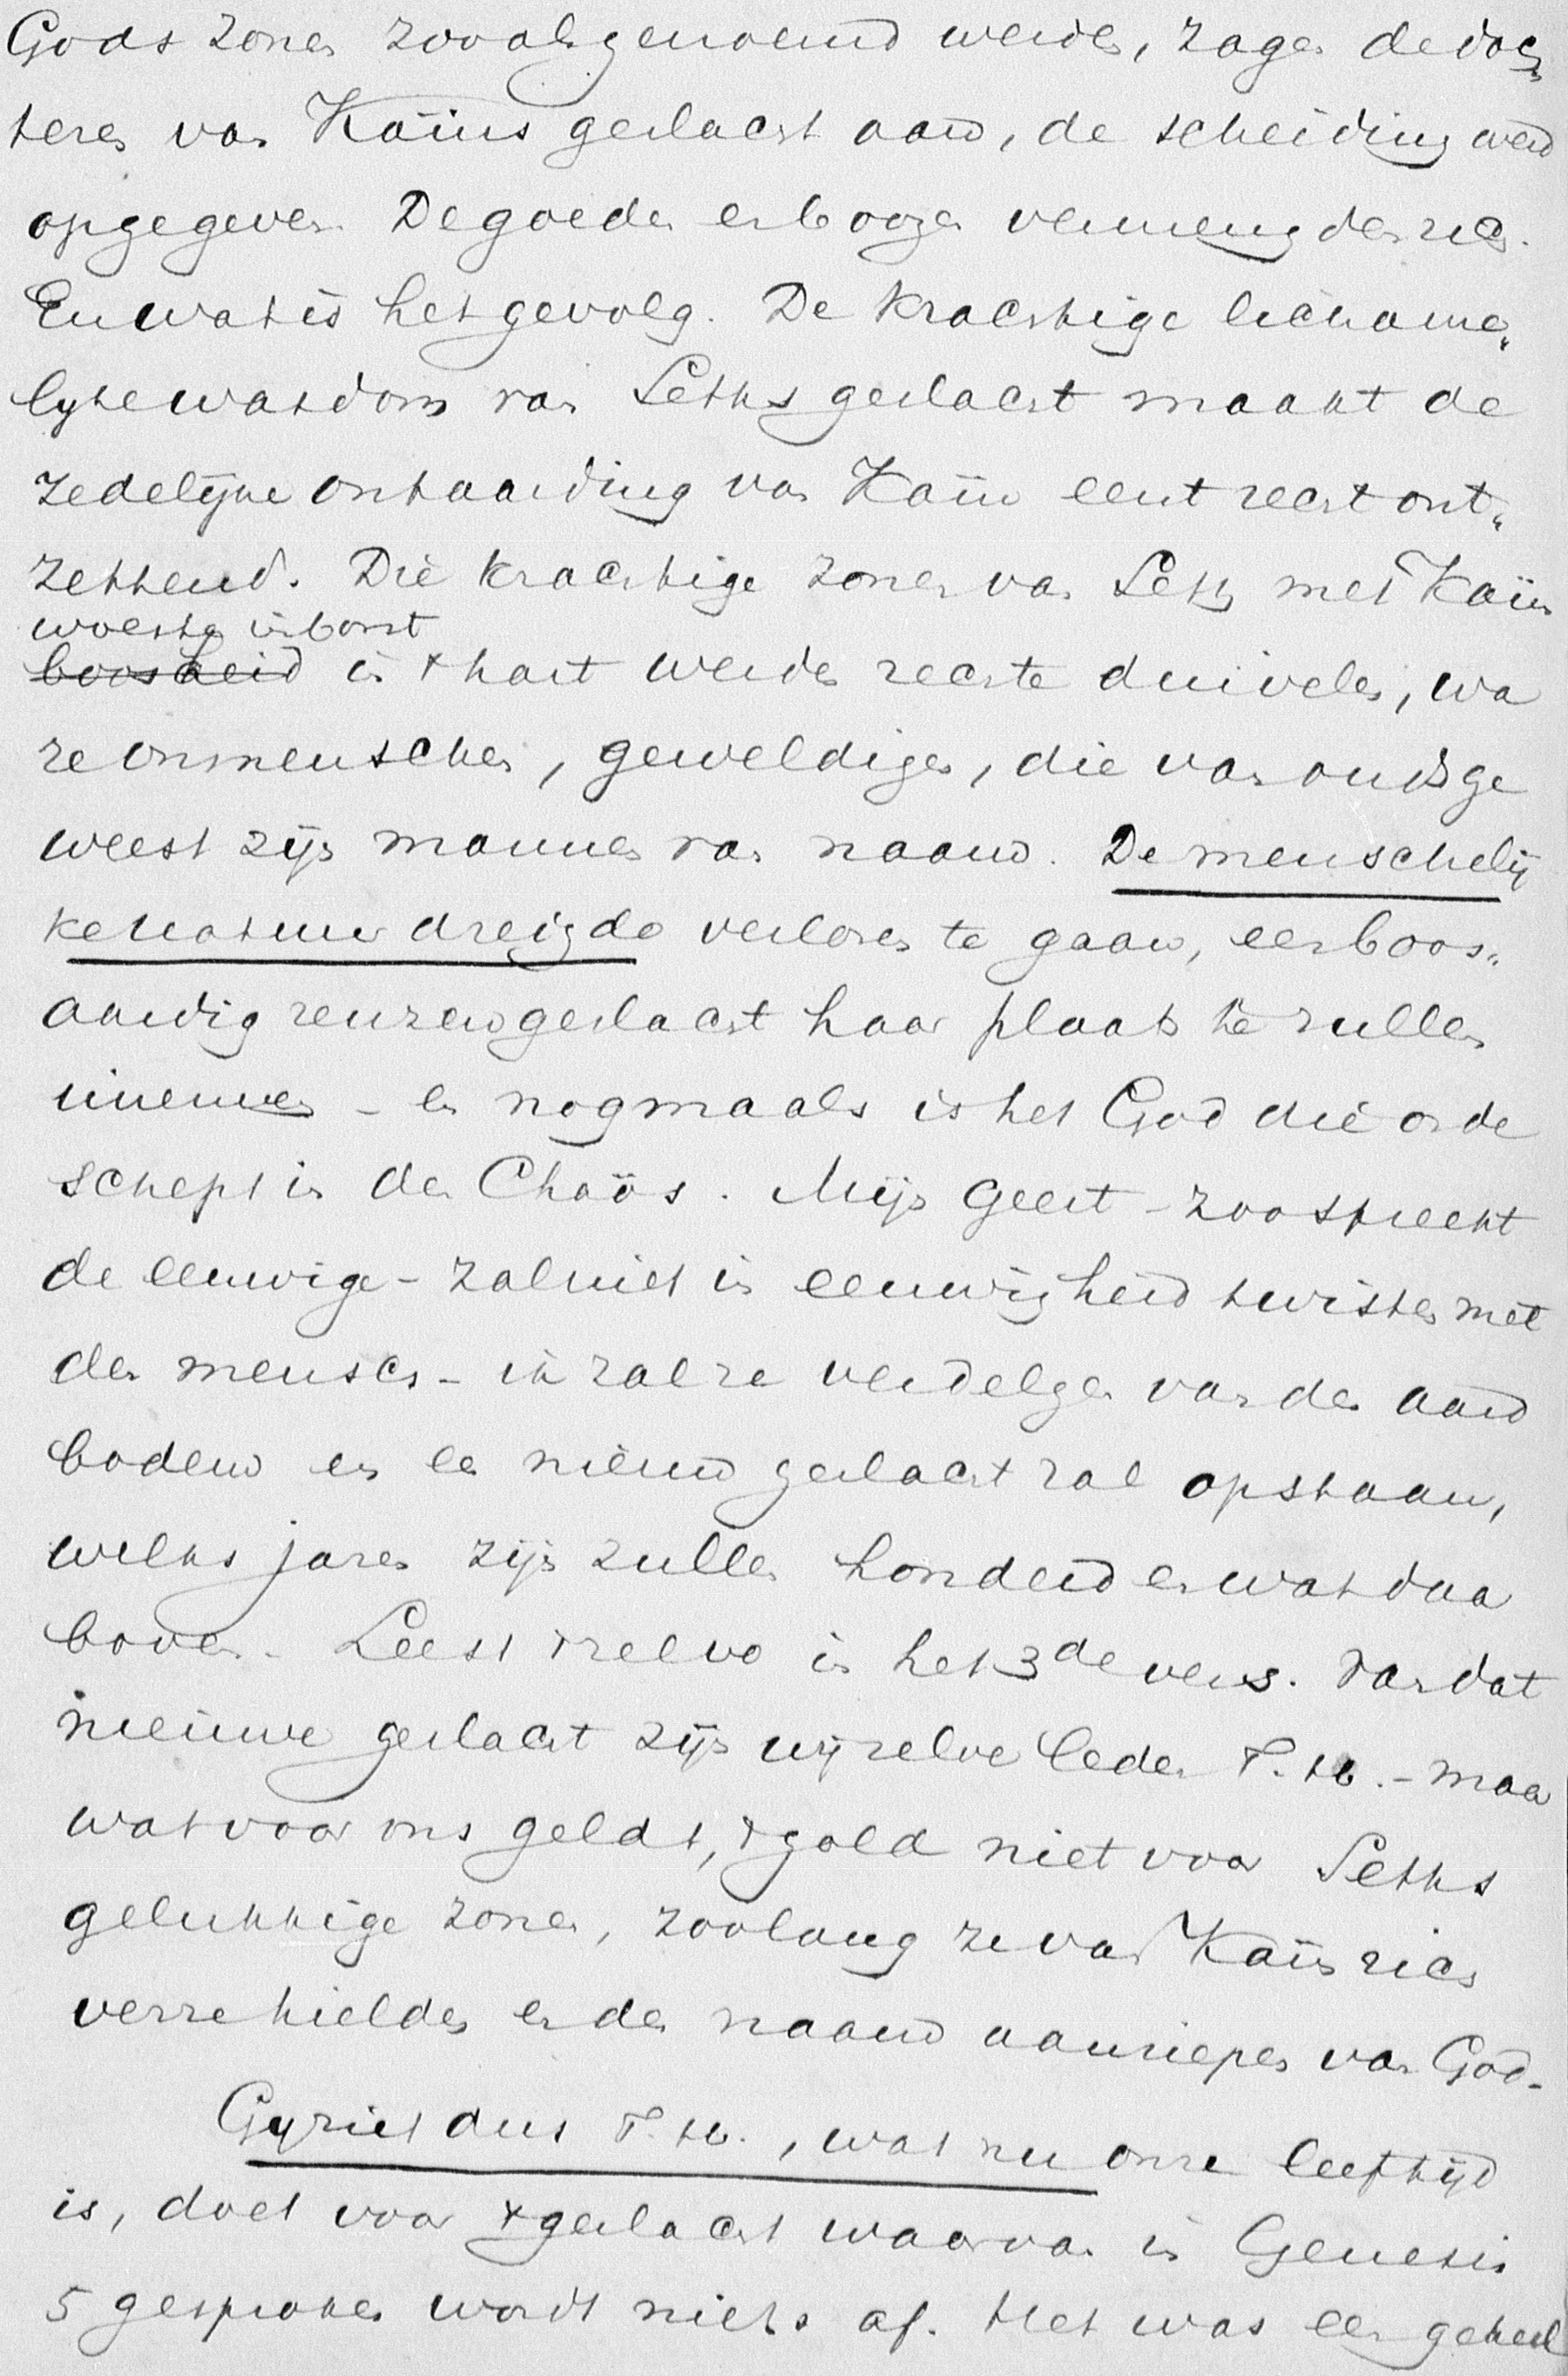 Gods zonen zooals genoemd werden, zagen de doch„
teren van Kaïns geslacht aan, de scheiding werd
opgegeven. De goeden en boozen vermengden zich.
En wat is het gevolg. De krachtige lichame„
lyke wasdom van Seths geslacht maakt de
zedelijke ontaarding van Kaïn eerst recht ont„
zettend. Die krachtige zonen van Seth met Kaïns
woeste inborst
~~boosheid~~ in 't hart werden rechte duivelen, wa
re onmenschen, geweldigen, die van ouds ge
weest zijn mannen van naam. De menschelij
ke natuur dreigde verloren te gaan, een boos„
aardig reuzengeslacht haar plaats te zullen
innemen – en nogmaals is het God die orde
schept in den Chaös. Mijn Geest – zoo spreekt
de eeuwige – zal niet in eeuwigheid twisten met
den mensch – ik zal ze verdelgen van den aard
bodem en een nieuw geslacht zal opstaan,
welks jaren zijn zullen honderd en wat daar
boven. Leest 't zelve in het 3de vers. Van dat
nieuwe geslacht zijn wij zelve leden T. H. – maar
wat voor ons geldt, 't gold niet voor Seths
gelukkige zonen, zoolang ze van Kaïn zich
verre hielden en den naam aanriepen van God.
Gy ziet dus T. H., wat nu onze leeftijd
is, doet voor 't geslacht waarvan in Genesis
5 gesproken wordt niets af. Het was een geheel